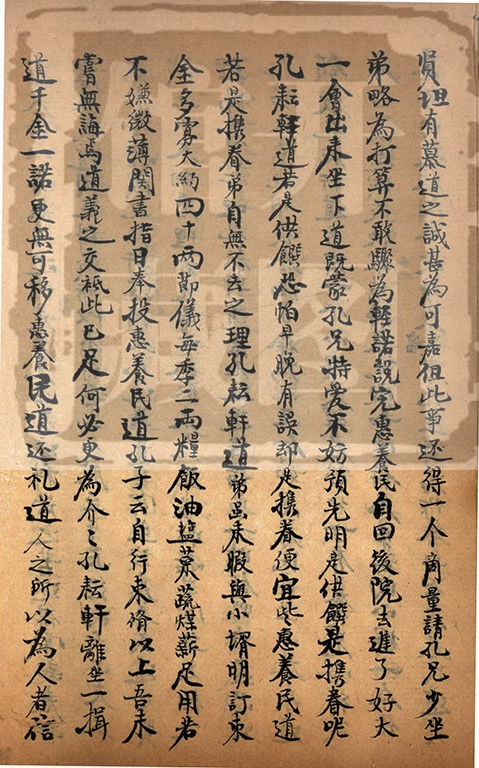 賢坦有慕道之誠甚為可嘉但此事还得一个商量請孔兄少坐
弟略為打算不敢驟為輕諾說完惠養民自回後院去進了好大
一會出来坐下道既蒙孔兄特爱不妨預先明是供饌是携眷呢
孔耘軒道若是供饌恐怕早晚有誤却是携眷便宜些惠養民道
若是携眷弟自無不去之理孔耘軒道弟虽未暇與小壻明訂束
金多寡大約四十两節儀每季二两糧飯油盐菜蔬煤薪足用若
不嫌微薄関書指日奉投惠養民道孔子云自行束脩以上吾未
嘗無誨焉道義之交祗此已足何必更為介〻孔耘軒離坐一揖
道千金一諾更無可移惠養民道还礼道人之所以為人者信